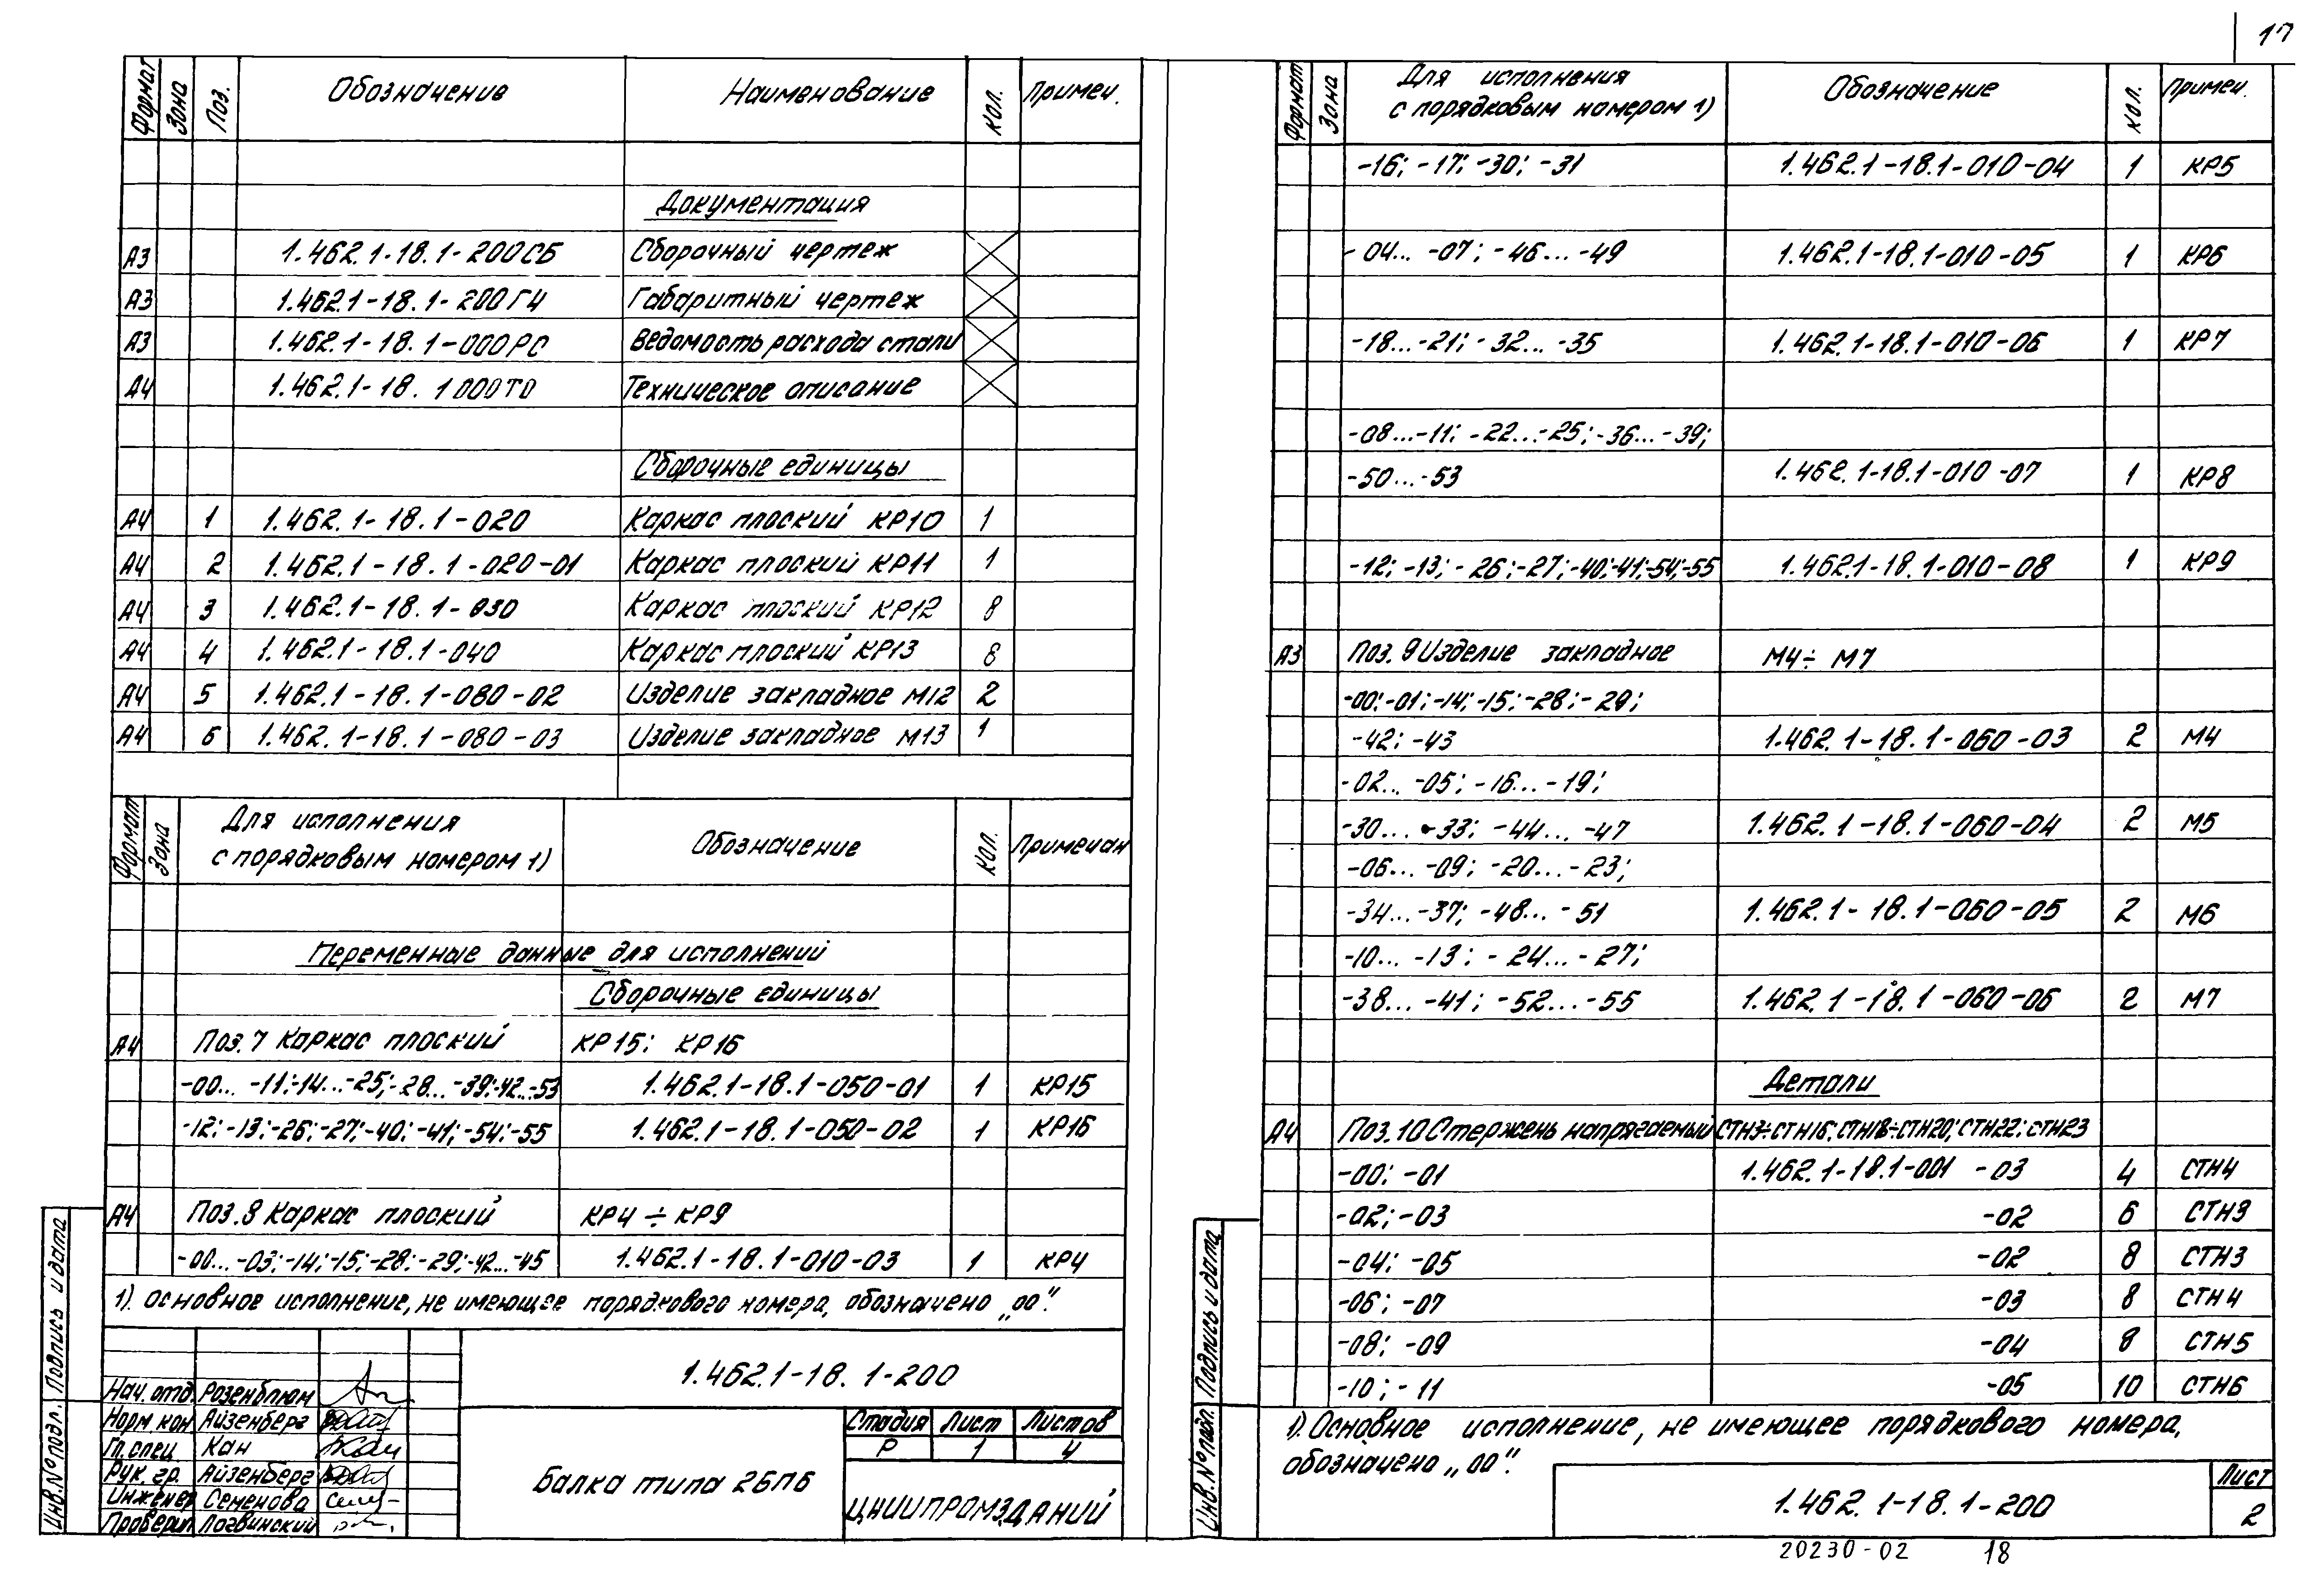 17
Формат Зона Поз. Обозначение Наименование Кол. Примеч.
Документация
А3 1.462.1-18.1-200СБ Сборочный чертеж
А3 1.462.1-18.1-200ГЧ Габаритный чертеж
А3 1.462.1-18.1-000РС Ведомость расхода стали
А4 1.462.1-18.1 000ТО Техническое описание
Сборочные единицы
А4 1 1.462.1-18.1-020 Каркас плоский КР10 1
А4 2 1.462.1-18.1-020-01 Каркас плоский КР11 1
А4 3 1.462.1-18.1-030 Каркас плоский КР12 8
А4 4 1.462.1-18.1-040 Каркас плоский КР13 8
А4 5 1.462.1-18.1-080-02 Изделие закладное М12 2
А4 6 1.462.1-18.1-080-03 Изделие закладное М13 1
Формат Зона Для исполнения с порядковым номером 1) Обозначение Кол. Примечан
Переменные данные для исполнений
Сборочные единицы
А4 Поз.7 Каркас плоский КР15; КР16
-00... -11;-14...-25;-28...-39;-42...-53 1.462.1-18.1-050-01 1 КР15
-12;-13;-26;-27;-40;-41;-54;-55 1.462.1-18.1-050-02 1 КР16
А4 Поз.8 Каркас плоский КР4 ÷ КР9
-00...-03;-14;-15;-28;-29;-42...-45 1.462.1-18.1-010-03 1 КР4
1). Основное исполнение, не имеющее порядкового номера, обозначено „00".
Инв.№подл. Подпись и дата
1.462.1-18.1-200
Нач.отд. Розенблюм
Норм.кон Айзенберг
Гл.спец Кан
Рук.гр. Айзенберг
Инженер Семенова
Проверил Логвинский
Балка типа 2БП6
Стадия Лист Листов
Р 1 4
ЦНИИПРОМЗДАНИЙ
Формат Зона Для исполнения с порядковым номером 1) Обозначение Кол. Примеч.
-16; -17; -30; -31 1.462.1-18.1-010-04 1 КР5
-04... -07; -46... -49 1.462.1-18.1-010-05 1 КР6
-18...-21; -32... -35 1.462.1-18.1-010-06 1 КР7
-08...-11; -22...-25; -36...-39;
-50...-53 1.462.1-18.1-010-07 1 КР8
-12; -13; -26;-27;-40;-41;-54;-55 1.462.1-18.1-010-08 1 КР9
А3 Поз. 9 Изделие закладное М4÷ М7
-00;-01;-14;-15;-28;-29;
-42; -43 1.462.1-18.1-060-03 2 М4
-02... -05; -16... -19;
-30... -33; -44... -47 1.462.1-18.1-060-04 2 М5
-06... -09; -20...-23;
-34...-37; -48...-51 1.462.1-18.1-060-05 2 М6
-10... -13; -24...-27;
-38... -41; -52...-55 1.462.1-18.1-060-06 2 М7
Детали
А4 Поз.10 Стержень напрягаемый СТН3÷СТН16; СТН18÷СТН20; СТН22; СТН23
-00; -01 1.462.1-18.1-001 -03 4 СТН4
-02; -03 -02 6 СТН3
-04; -05 -02 8 СТН3
-06; -07 -03 8 СТН4
-08; -09 -04 8 СТН5
-10; -11 -05 10 СТН6
1). Основное исполнение, не имеющее порядкового номера,
обозначено „00".
Инв.№подл. Подпись и дата
1.462.1-18.1-200
Лист
2
20230-02 18